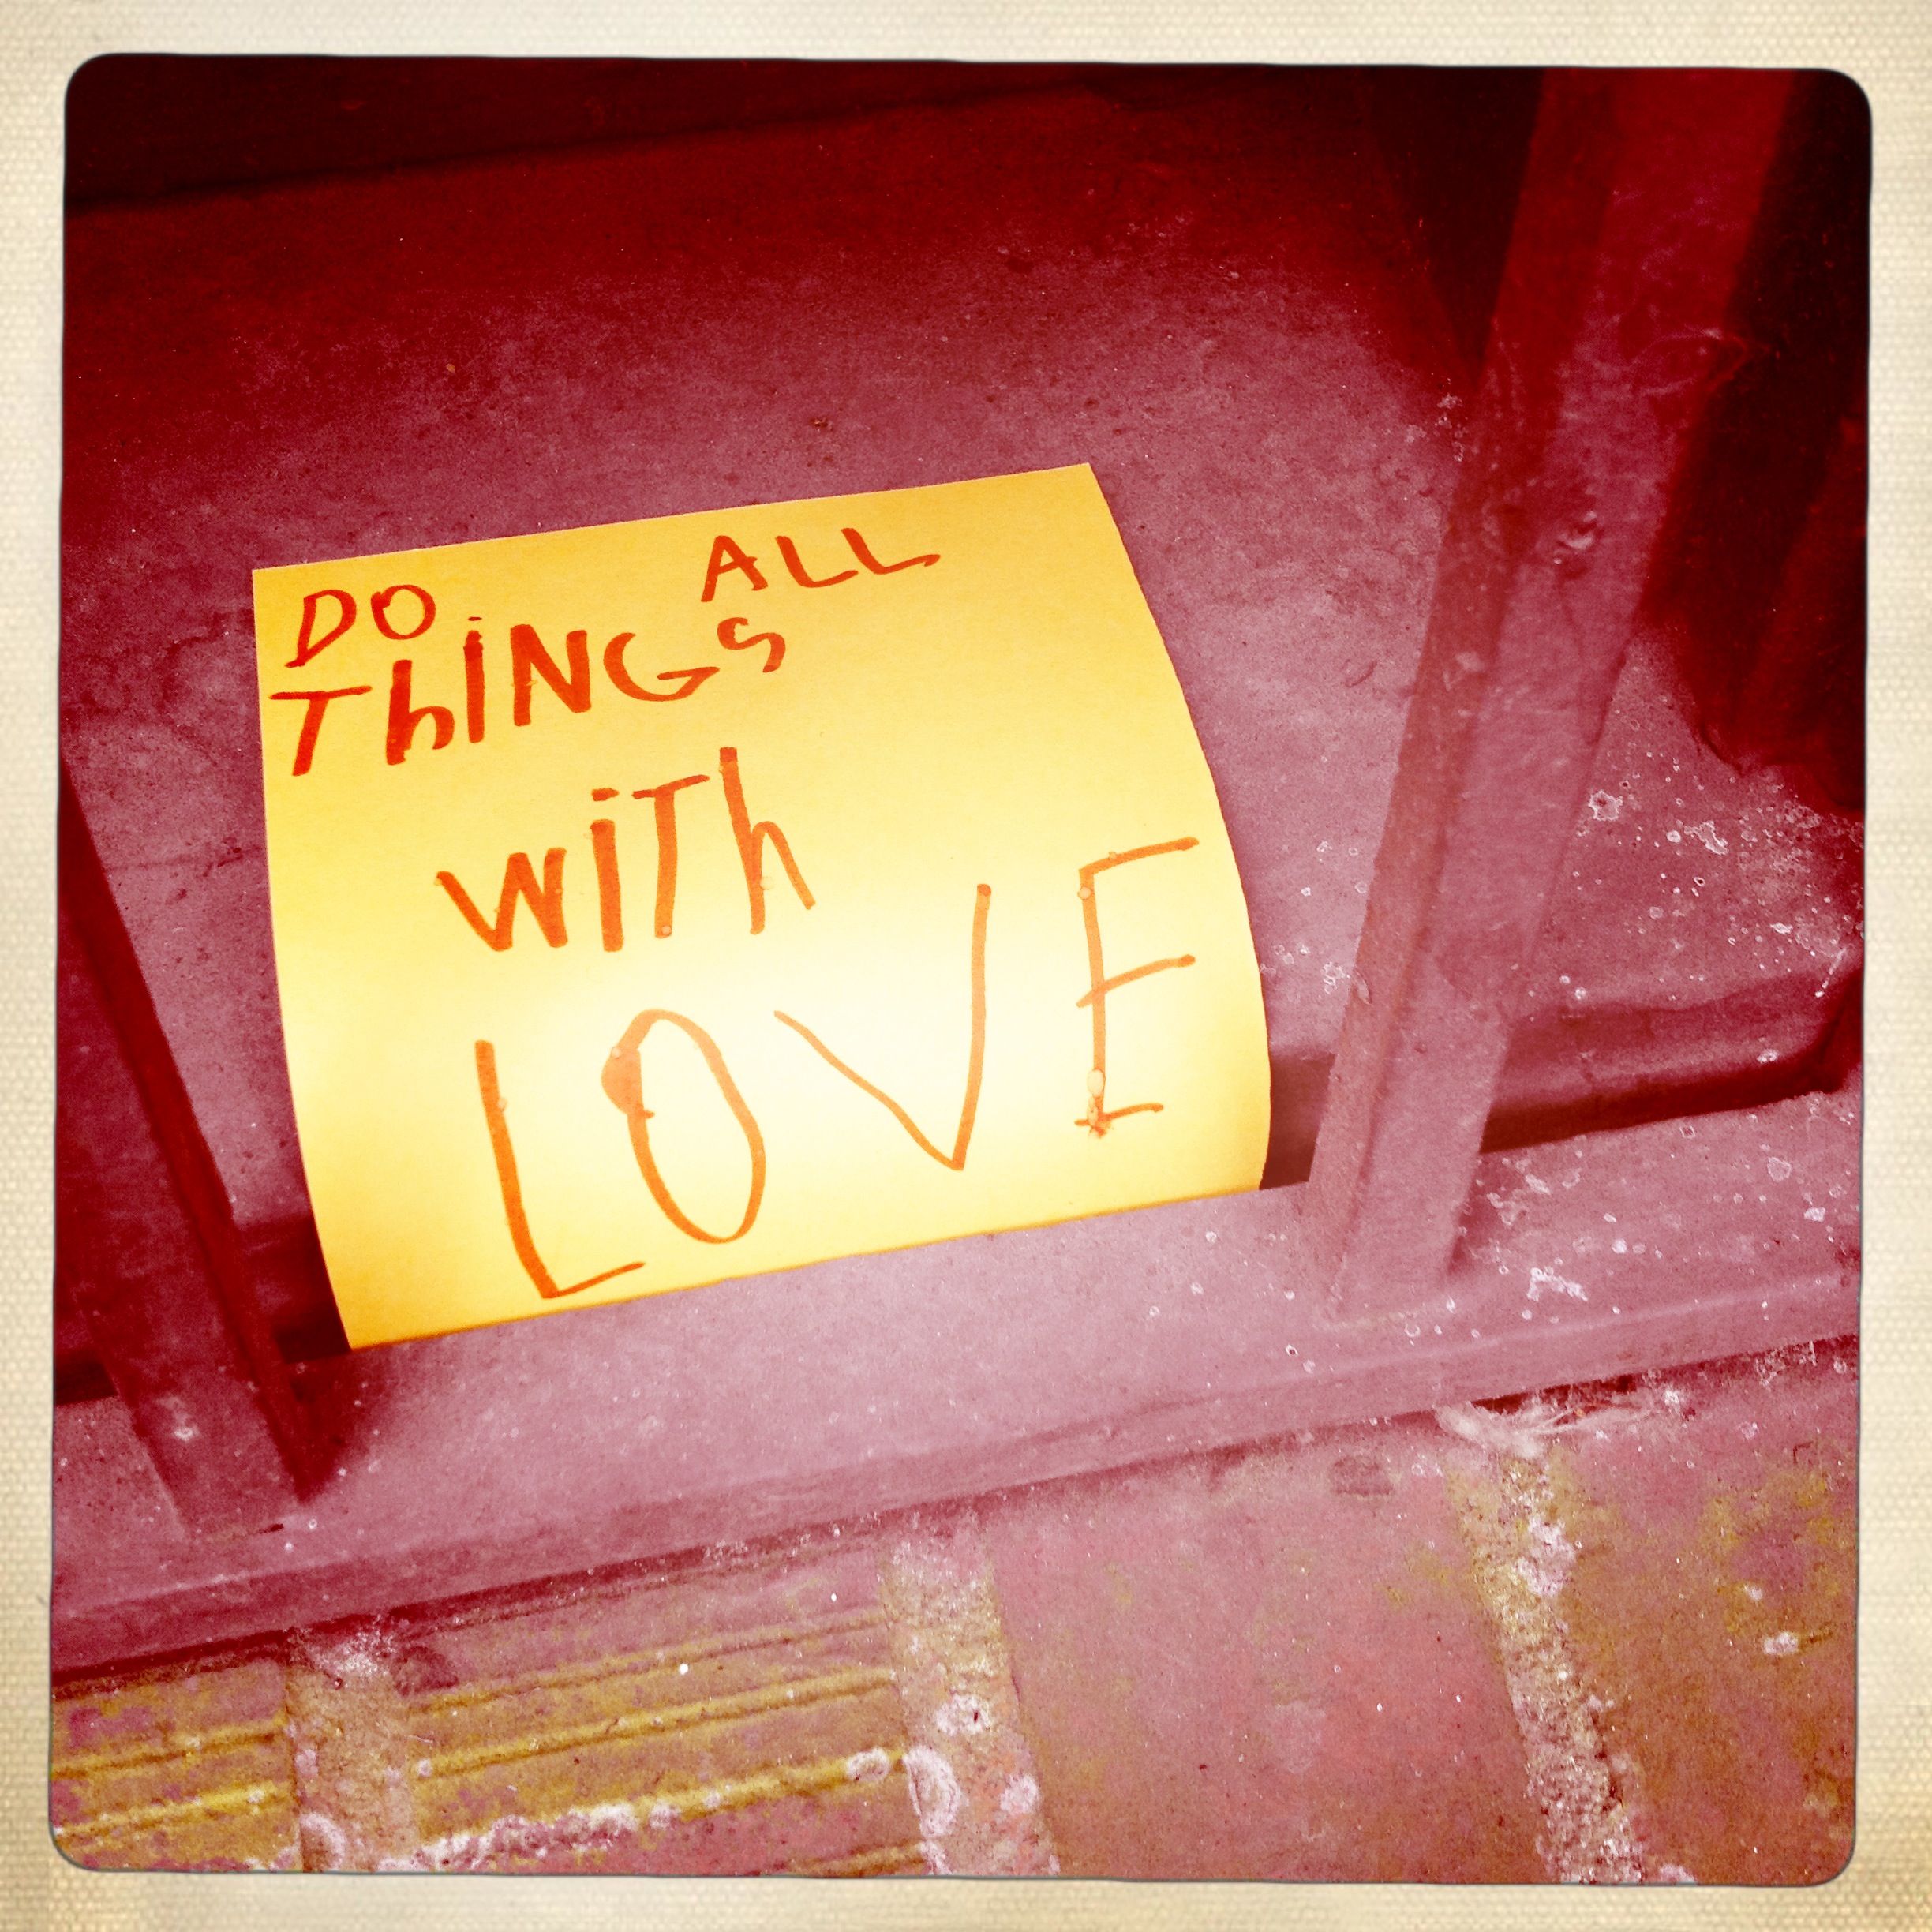 DO ALL
ThiNGS
WiTh
LOVE